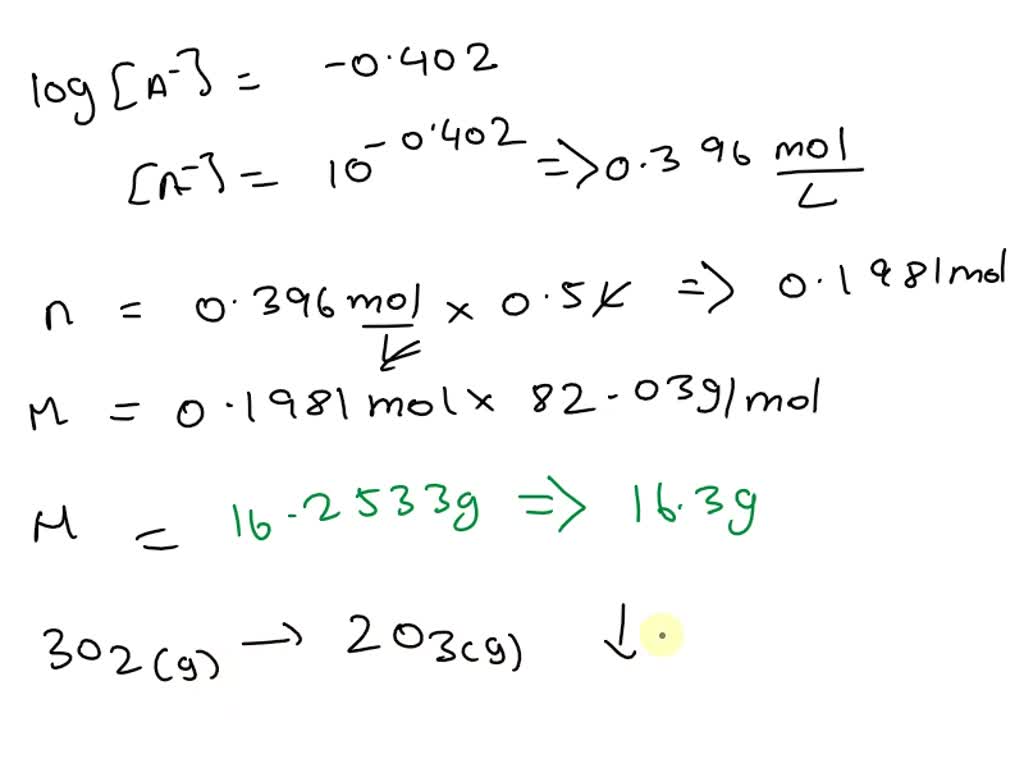 log [A⁻] = -0.402
[A⁻] = 10^-0.402 => 0.396 mol/L
n = 0.396 mol/L × 0.5 L => 0.1981 mol
M = 0.1981 mol × 82.03 g/mol
M = 16.2533g => 16.3g
3O₂(g) → 2O₃(g) ↓